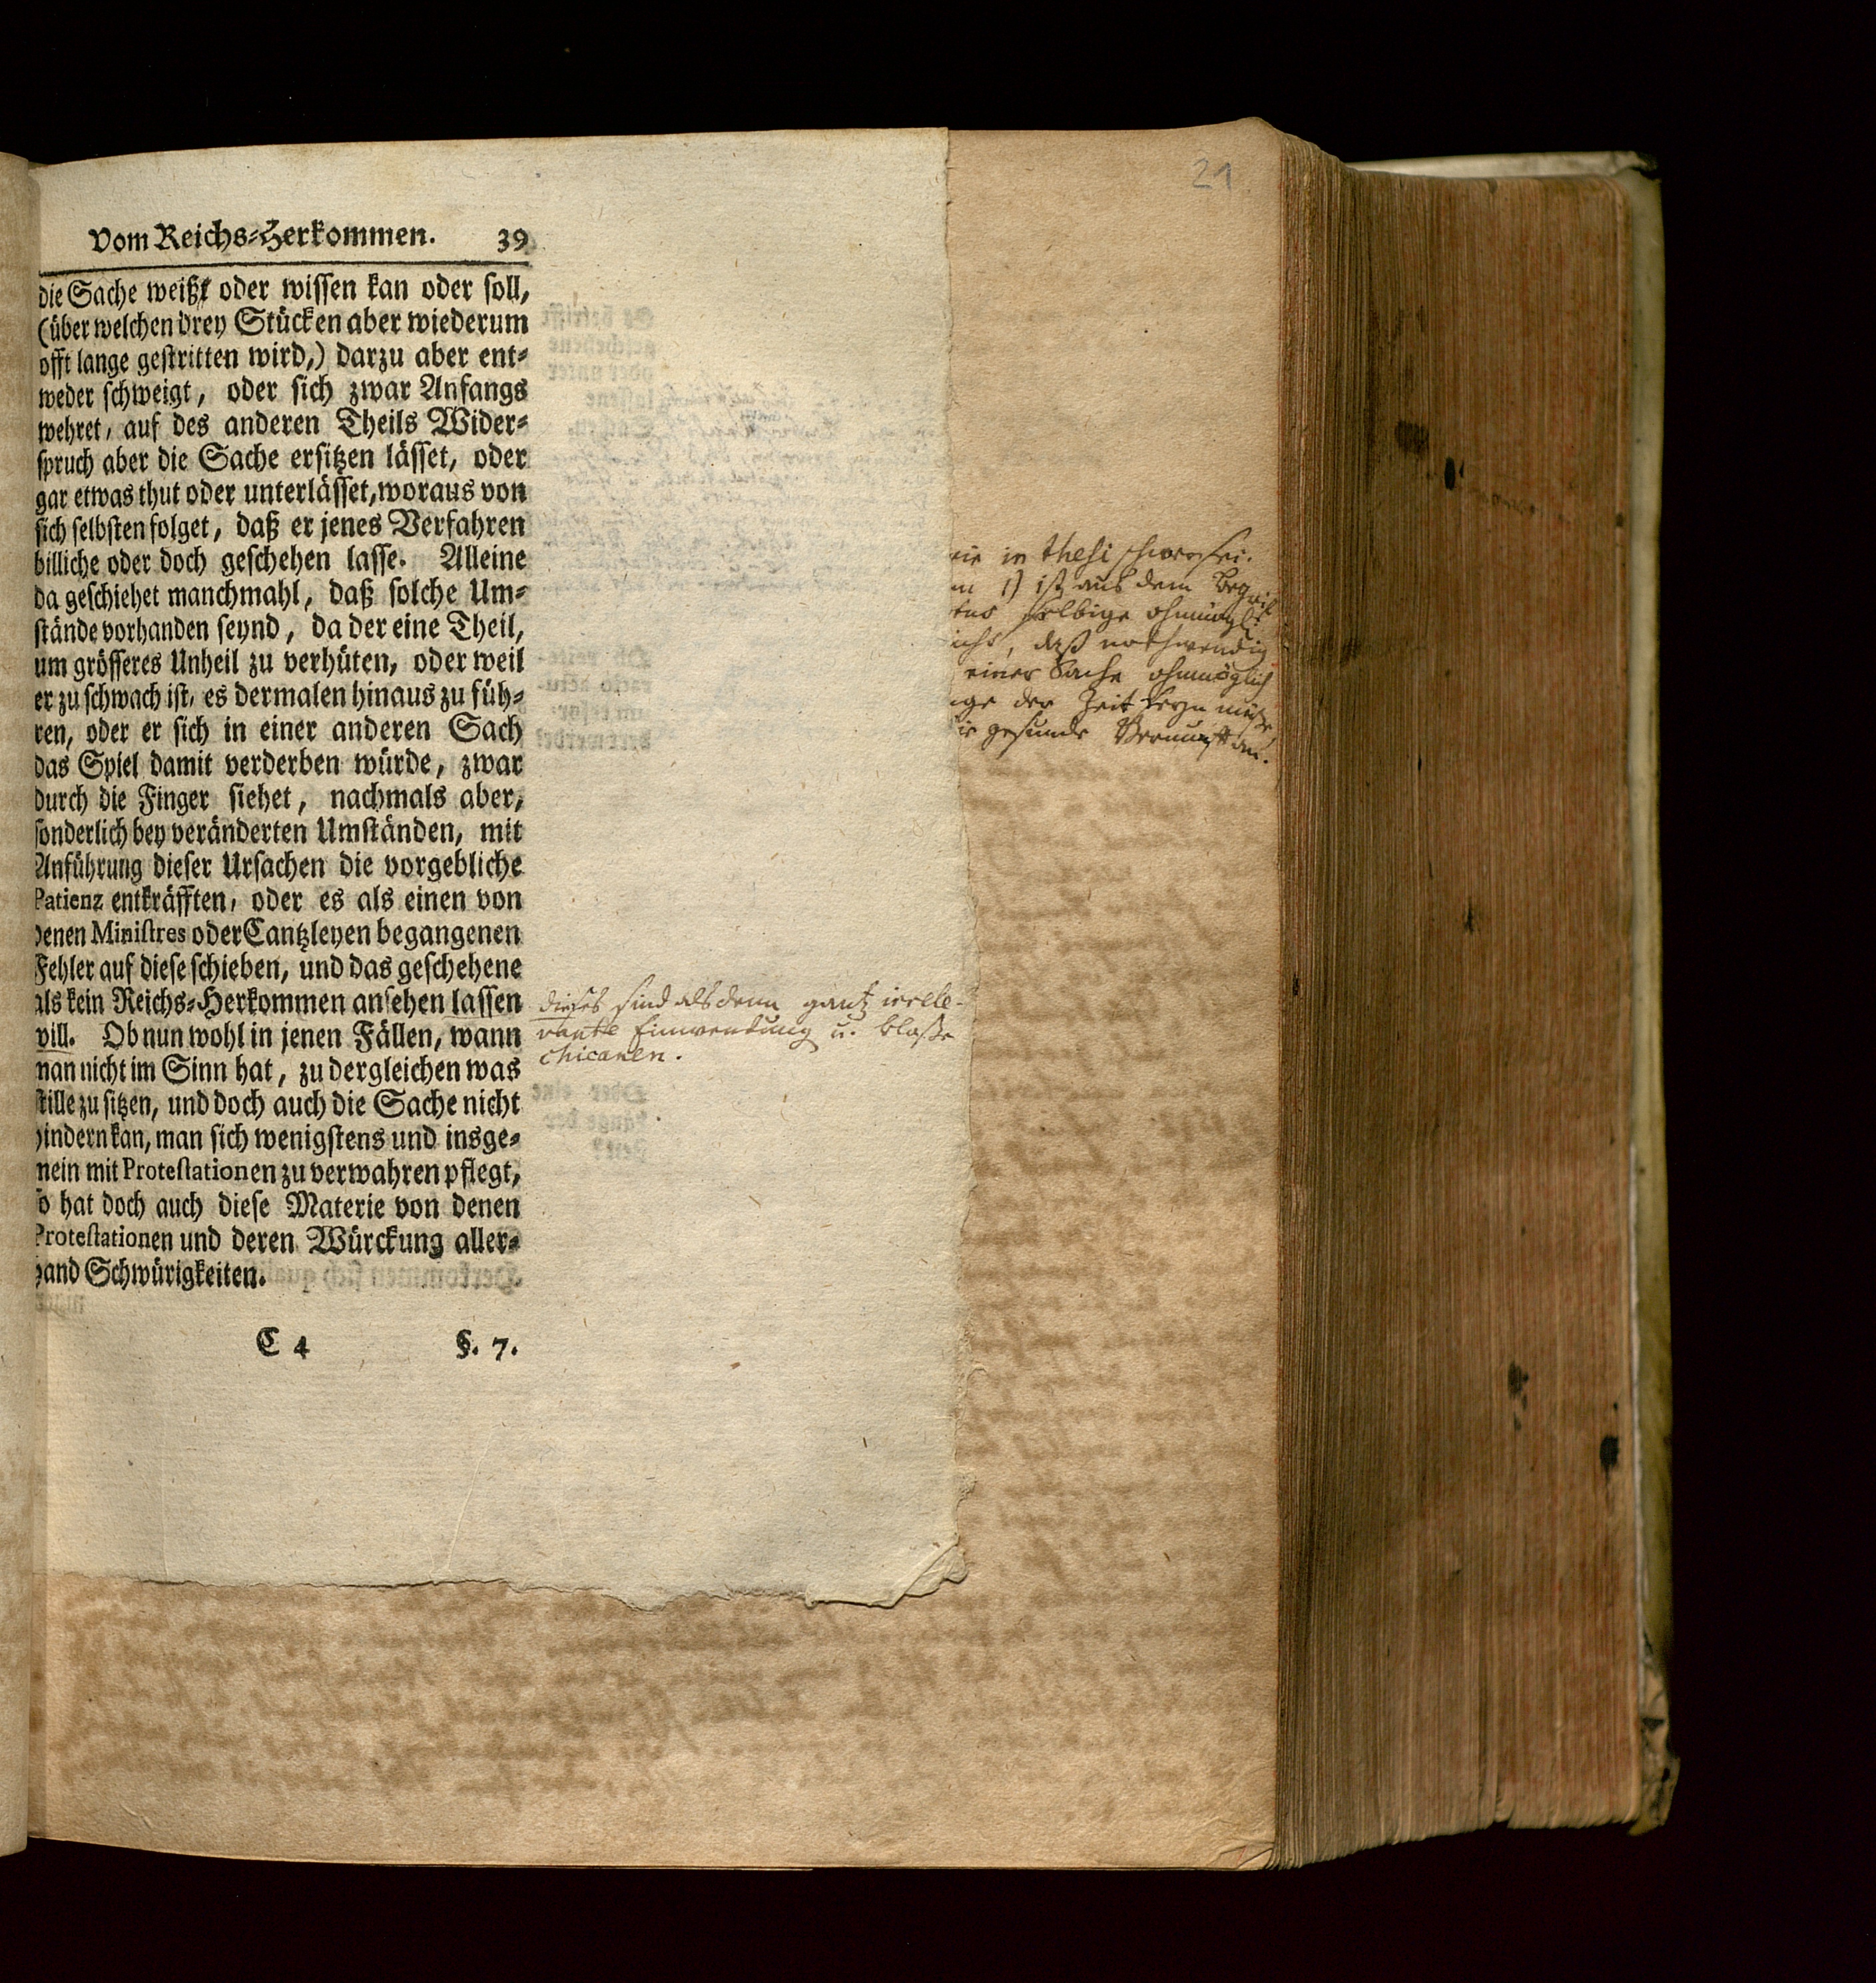 Vom Reichs-Herkommen. 39
die Sache weißt oder wissen kan oder soll,
(über welchen drey Stücken aber wiederum
offt lange gestritten wird,) darzu aber ent-
weder schweigt, oder sich zwar Anfangs
wehret, auf des anderen Theils Wider-
spruch aber die Sache ersitzen lässet, oder
gar etwas thut oder unterlässet, woraus von
sich selbsten folget, daß er jenes Verfahren
billiche oder doch geschehen lasse. Alleine
da geschiehet manchmahl, daß solche Um-
stände vorhanden seynd, da der eine Theil,
um grösseres Unheil zu verhüten, oder weil
er zu schwach ist, es dermalen hinaus zu füh-
ren, oder er sich in einer anderen Sach
das Spiel damit verderben würde, zwar
durch die Finger siehet, nachmals aber,
sonderlich bey veränderten Umständen, mit
Anführung dieser Ursachen die vorgebliche
Patienz entkräfften, oder es als einen von
denen Ministres oder Cantzleyen begangenen
Fehler auf diese schieben, und das geschehene
als kein Reichs-Herkommen ansehen lassen
will. Ob nun wohl in jenen Fällen, wann
man nicht im Sinn hat, zu dergleichen was
stille zu sitzen, und doch auch die Sache nicht
hindern kan, man sich wenigstens und insge-
mein mit Protestationen zu verwahren pflegt,
so hat doch auch diese Materie von denen
Protestationen und deren Würckung aller-
hand Schwürigkeiten.
C 4 §. 7.
dieses sind alsdenn gantz irrele-
vante Einwendung u. bloße
chicanen.
21
in thesi schwer sei.
1) ist aus dem
selbige
, daß nothwendig
einer Sache ohnmöglich
der Zeit seyn müße
gesunde Vernunft an.